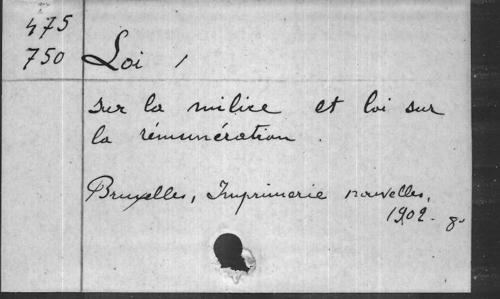 475
750 Loi
sur la milice et loi sur
la rémunération.
Bruxelles, Imprimerie nouvelles,
1902. 8°